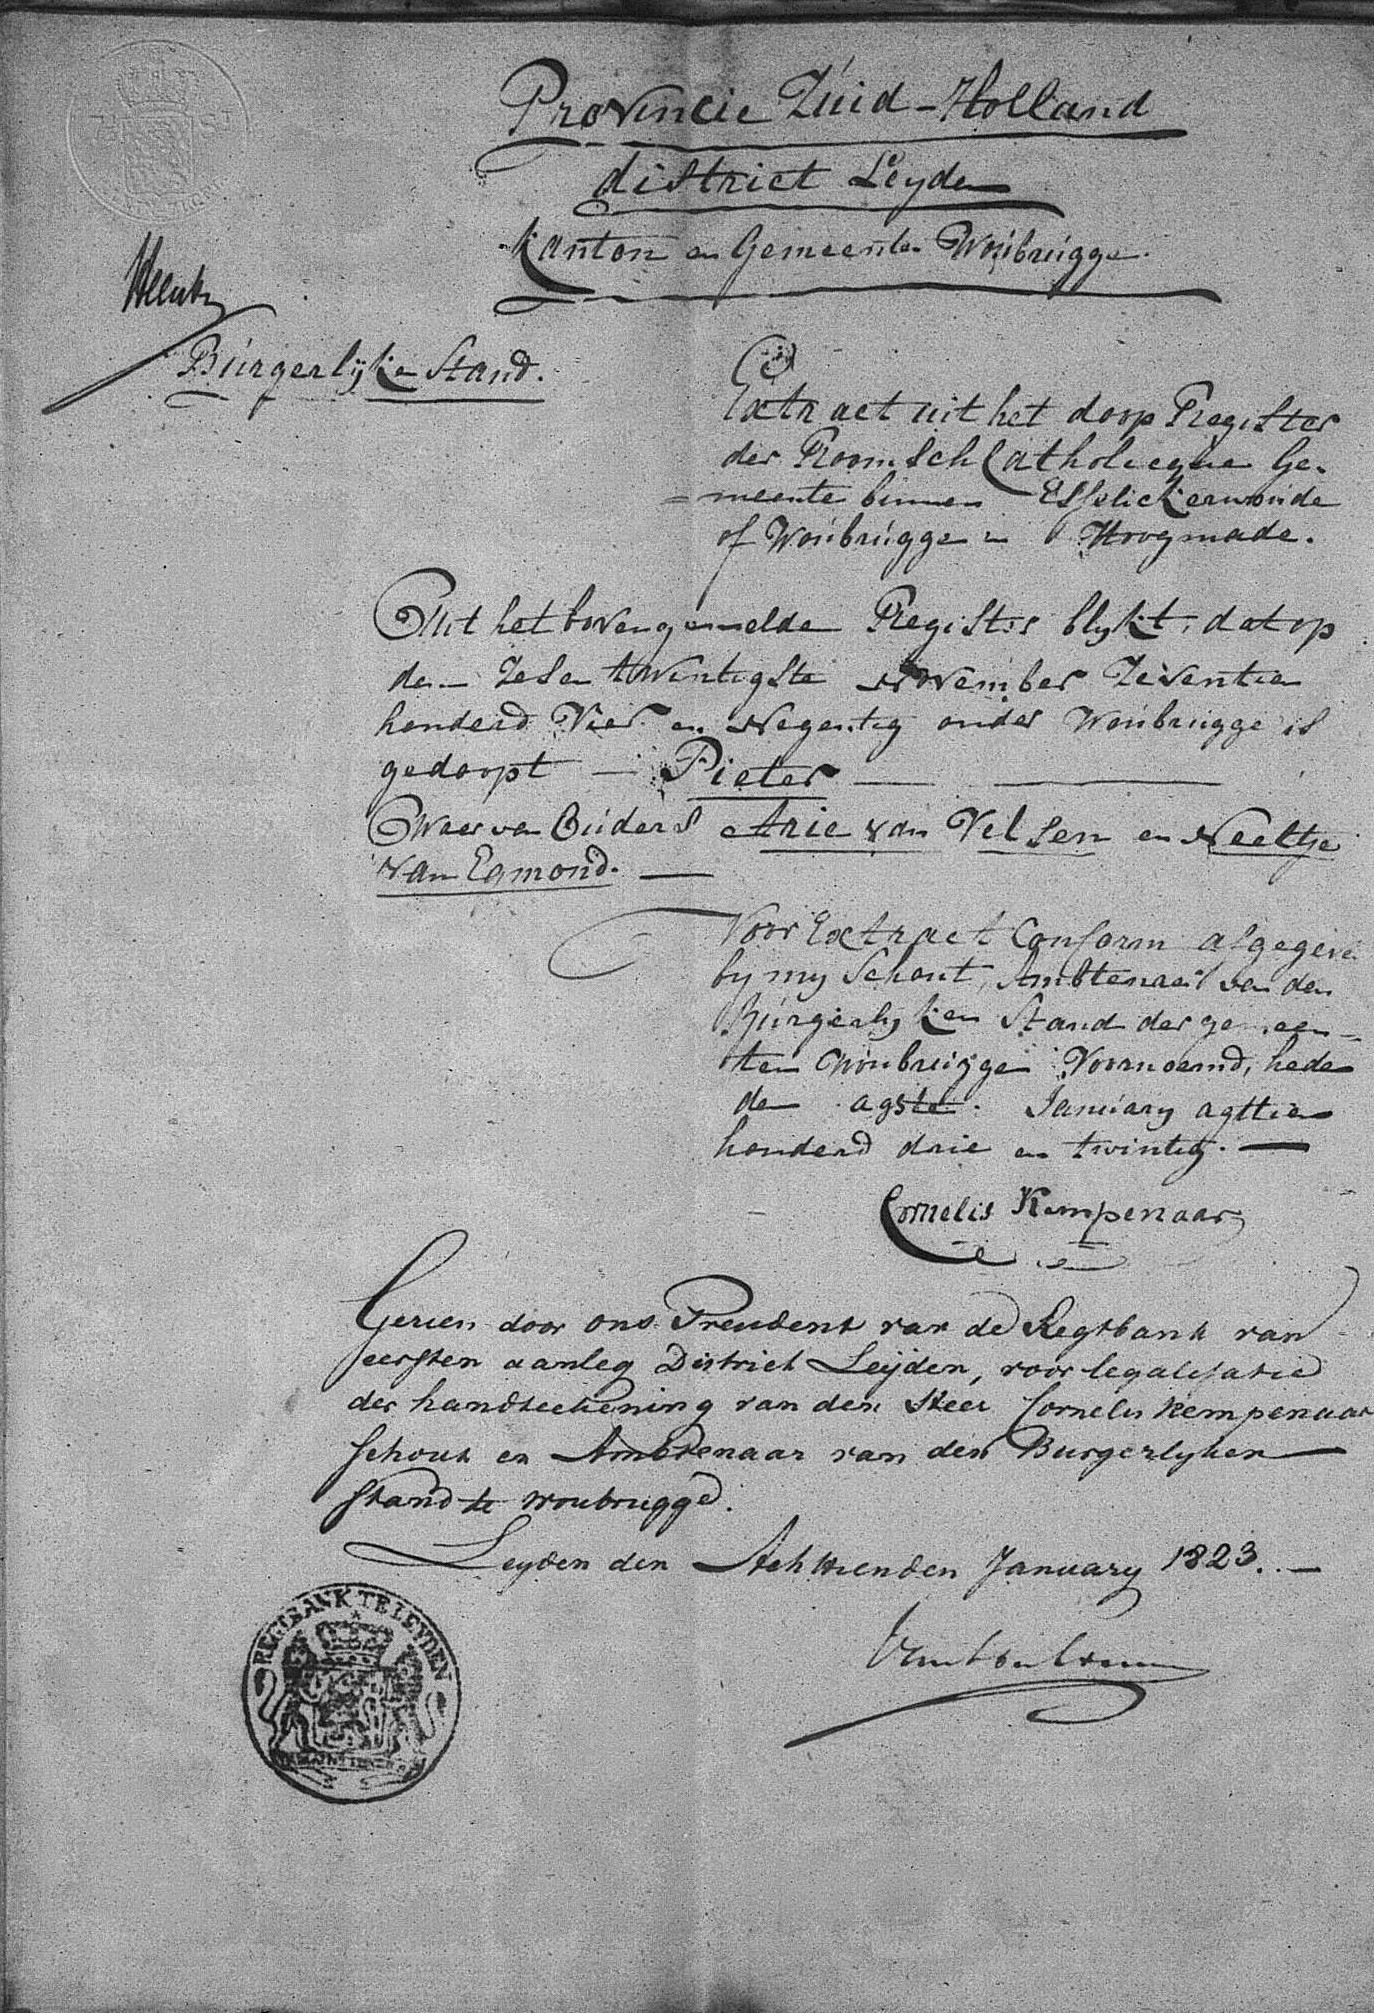 Provincie Zúid-Holland
district Leyden
Kanton en Gemeenten Woúbrúgge.
Búrgerlÿke Stand.
Extract uit het doop Register
der Roomsch Catholicque Ge-
= meente binnen Esselickerwoude
of Woúbrúgge en Hoogmade.
Uit het bovengemelde Register blykt, dat op
den Zesen twintigste November Zeventien
honderd Vier en Negentig onder Woúbrúgge is
gedoopt — Pieter —
Waer van Oúders Arie van Velsen en Neeltje
van Egmond. —
Voor Extract Conform afgegeven
by my Schout, Ambtenaar van den
Búrgerlyken Stand der gemeen-
ten Woúbrúgge Voornoemd, heden
den agste. Janúary agttien
honderd drie en twintig. —
Cornelis Kempenaar
Gezien door ons President van de Regtbank van
eersten aanleg District Leÿden, voor legalisatie
der handteekening van den Heer Cornelis Kempenaar
Schout en Ambtenaar van den Burgerlyken
Stand te Woubrugge.
Leyden den Achttienden January 1823. —
REGTBANK TE LEYDEN